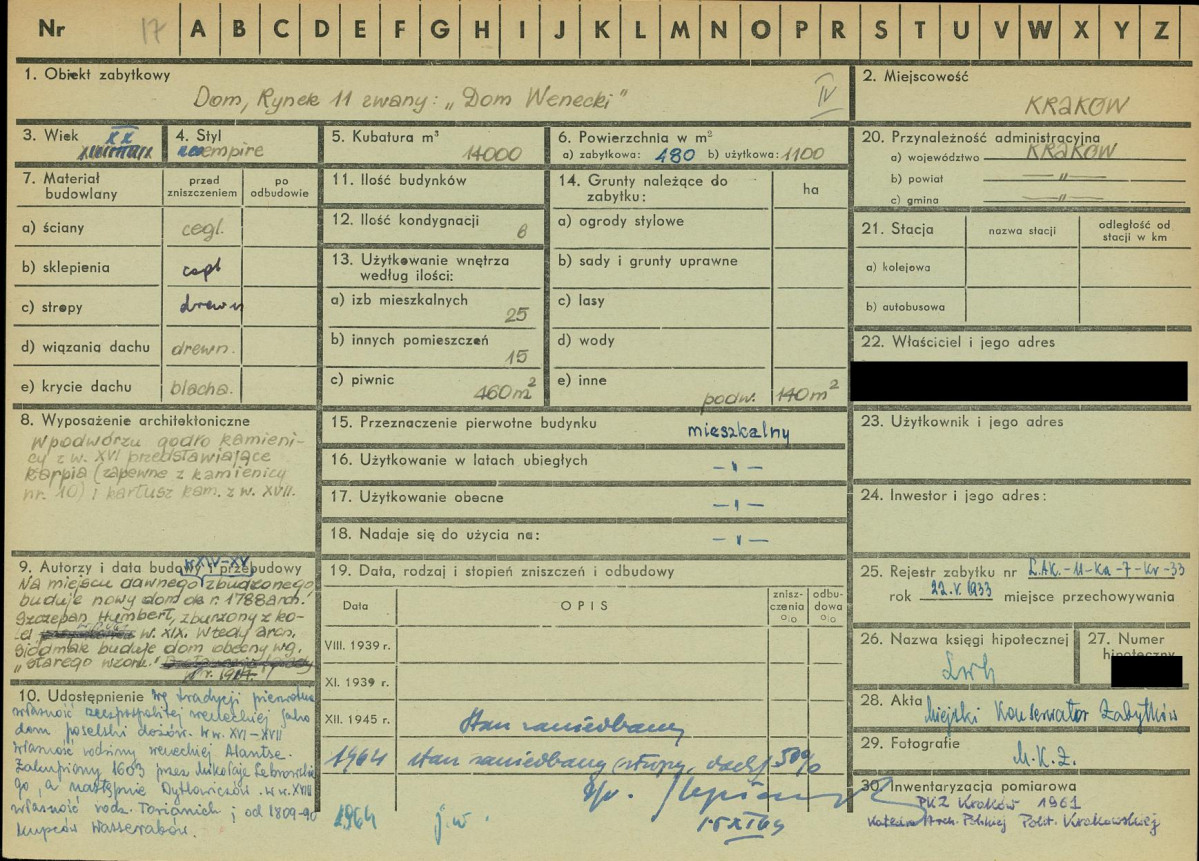 Nr 17 A B C D E F G H I J K L M N O P R S T U V W X Y Z
1. Obiekt zabytkowy
Dom, Rynek 11 zwany: „Dom Wenecki"
IV
2. Miejscowość
KRAKÓW
3. Wiek
XX
4. Styl
empire
5. Kubatura m³
14000
6. Powierzchnia w m²
a) zabytkowa: 480 b) użytkowa: 1100
20. Przynależność administracyjna
a) województwo KRAKÓW
b) powiat —〃—
c) gmina —〃—
7. Materiał budowlany
przed zniszczeniem
po odbudowie
a) ściany cegl.
b) sklepienia cegl
c) stropy drewn
d) wiązania dachu drewn.
e) krycie dachu blacha.
11. Ilość budynków
12. Ilość kondygnacji 6
13. Użytkowanie wnętrza
według ilości:
a) izb mieszkalnych
25
b) innych pomieszczeń
15
c) piwnic 460m²
14. Grunty należące do
zabytku:
ha
a) ogrody stylowe
b) sady i grunty uprawne
c) lasy
d) wody
e) inne
podw. 140m²
21. Stacja
nazwa stacji
odległość od
stacji w km
a) kolejowa
b) autobusowa
22. Właściciel i jego adres
8. Wyposażenie architektoniczne
W podwórzu godło kamieni-
cy z w. XVI przedstawiające
karpia (zapewne z kamienicy
nr. 10) i kartusz kam. z w. XVII.
15. Przeznaczenie pierwotne budynku
mieszkalny
16. Użytkowanie w latach ubiegłych
-〃-
17. Użytkowanie obecne
-〃-
18. Nadaje się do użycia na:
-〃-
23. Użytkownik i jego adres
24. Inwestor i jego adres:
9. Autorzy i data budowy i przebudowy
w XIV-XV
Na miejscu dawnego zburzonego
buduje nowy dom ok r. 1788 arch.
Szczepan Humbert, zburzony z ko-
w. XIX. Wtedy arch.
Siedmak buduje dom obecny wg.
„starego wzoru."
10. Udostępnienie
Wg tradycji pierwotna
własność rzeczpospolitej weneckiej jako
dom poselski dożów. W w. XVI-XVII
własność rodziny weneckiej Alantse.
Zakupiony 1603 przez Mikołaja Zebrowskie
go, a następnie Dytłowiczów. w w. XVIII
własność rodz. Torianich; od 1809-90
kupców Wasserabów.
19. Data, rodzaj i stopień zniszczeń i odbudowy
Data
OPIS
znisz-
czenia
%
odbu-
dowa
%
VIII. 1939 r.
XI. 1939 r.
XII. 1945 r. Stan zaniedbany
1964 stan zaniedbany stropy, dach 50%
1964 j.w.
15 XI 64
25. Rejestr zabytku nr L.AK.-11-Ka-7-Kr-33
rok 22.V.1933 miejsce przechowywania
26. Nazwa księgi hipotecznej
Lwh
27. Numer
hipoteczny
28. Akta
Miejski Konserwator Zabytków
29. Fotografie
M.K.Z.
30. Inwentaryzacja pomiarowa
PKZ Kraków 1961
Katedra Arch. Polskiej Polit. Krakowskiej